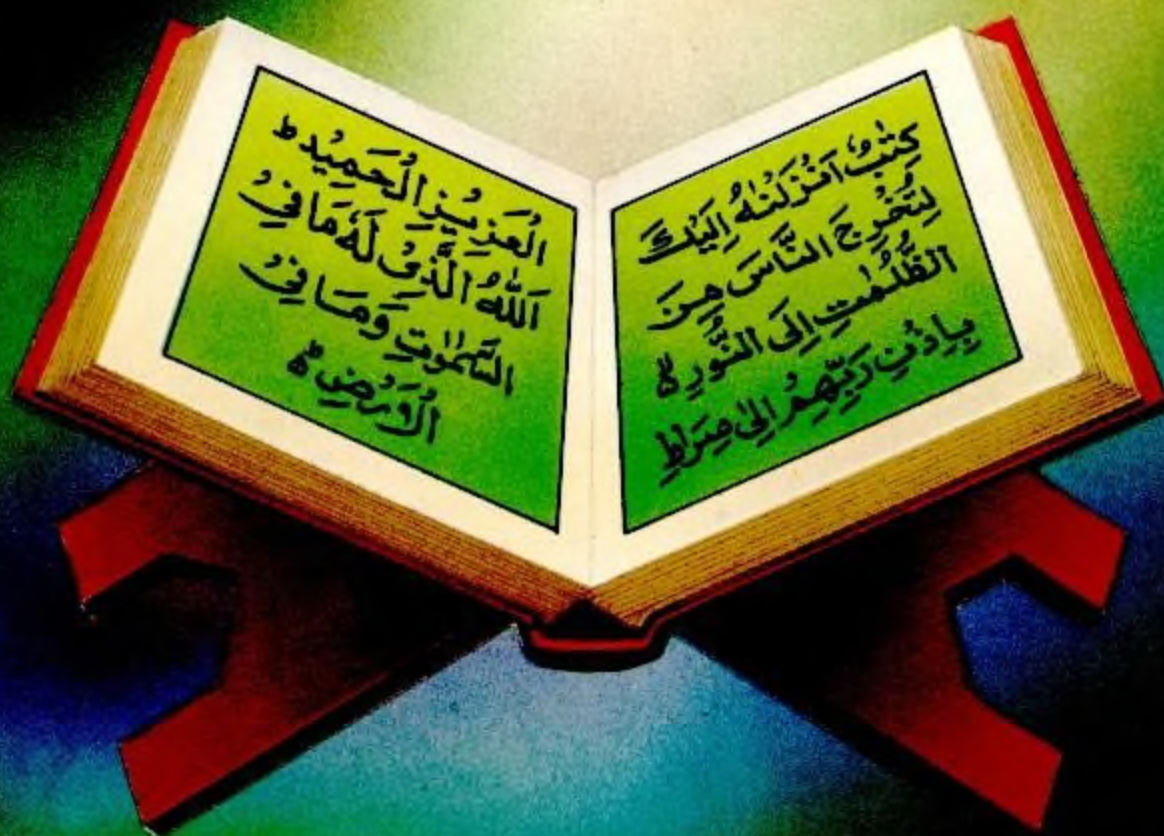 كِتٰبٌ اَنْزَلْنٰهُ اِلَيْكَ
لِتُخْرِجَ النَّاسَ مِنَ
الظُّلُمٰتِ اِلَى النُّوْرِ ۵
بِاِذْنِ رَبِّهِمْ اِلٰى صِرَاطِ
الْعَزِيْزِ الْحَمِيْدِ ط
اَللّٰهُ الَّذِيْ لَهٗ مَا فِيْ
السَّمٰوٰتِ وَمَا فِيْ
الْاَرْضِ ۵